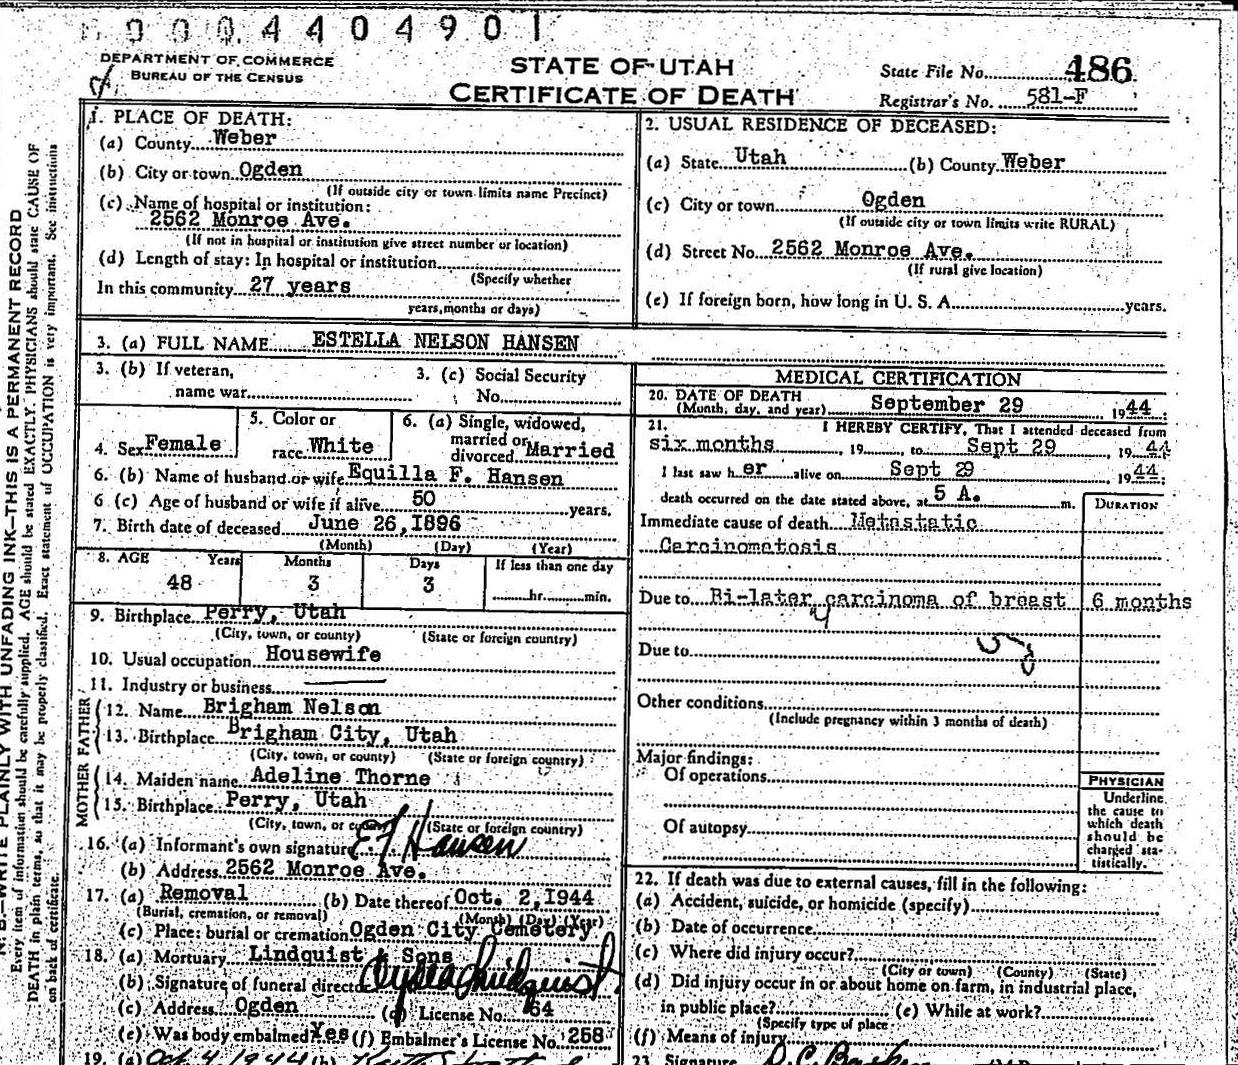 0004404901
DEPARTMENT OF COMMERCE
BUREAU OF THE CENSUS
STATE OF UTAH
CERTIFICATE OF DEATH
State File No. 486
Registrar's No. 581-F
N. B.—WRITE PLAINLY WITH UNFADING INK—THIS IS A PERMANENT RECORD
Every item of information should be carefully supplied. AGE should be stated EXACTLY. PHYSICIANS should state CAUSE OF
DEATH in plain terms, so that it may be properly classified. Exact statement of OCCUPATION is very important. See instructions
on back of certificate.
1. PLACE OF DEATH:
(a) County Weber
(b) City or town Ogden
(If outside city or town limits name Precinct)
(c) Name of hospital or institution:
2562 Monroe Ave.
(If not in hospital or institution give street number or location)
(d) Length of stay: In hospital or institution
(Specify whether
In this community 27 years
years, months or days)
2. USUAL RESIDENCE OF DECEASED:
(a) State Utah (b) County Weber
(c) City or town Ogden
(If outside city or town limits write RURAL)
(d) Street No. 2562 Monroe Ave.
(If rural give location)
(e) If foreign born, how long in U. S. A. years.
3. (a) FULL NAME ESTELLA NELSON HANSEN
3. (b) If veteran, name war
3. (c) Social Security No.
4. Sex Female
5. Color or race White
6. (a) Single, widowed, married or divorced Married
6. (b) Name of husband or wife Equilla F. Hansen
6 (c) Age of husband or wife if alive 50 years.
7. Birth date of deceased June 26, 1896
(Month) (Day) (Year)
8. AGE Years Months Days If less than one day
48 3 3 hr. min.
9. Birthplace Perry, Utah
(City, town, or county) (State or foreign country)
10. Usual occupation Housewife
11. Industry or business
FATHER
12. Name Brigham Nelson
13. Birthplace Brigham City, Utah
(City, town, or county) (State or foreign country)
MOTHER
14. Maiden name Adeline Thorne
15. Birthplace Perry, Utah
(City, town, or county) (State or foreign country)
16. (a) Informant's own signature E F Hansen
(b) Address 2562 Monroe Ave.
17. (a) Removal (b) Date thereof Oct. 2, 1944
(Burial, cremation, or removal) (Month) (Day) (Year)
(c) Place: burial or cremation Ogden City Cemetery
18. (a) Mortuary Lindquist & Sons
(b) Signature of funeral director
(c) Address Ogden (d) License No. 64
(e) Was body embalmed Yes (f) Embalmer's License No. 258
19. (a) Oct 4, 1944 (b)
MEDICAL CERTIFICATION
20. DATE OF DEATH
(Month, day, and year) September 29 1944
21. I HEREBY CERTIFY, That I attended deceased from
six months, 19, to Sept 29, 1944
I last saw her alive on Sept 29 1944
death occurred on the date stated above, at 5 A. m.
DURATION
Immediate cause of death Metastatic
Carcinomatosis
Due to Bi-later carcinoma of breast 6 months
Due to
Other conditions
(Include pregnancy within 3 months of death)
Major findings:
Of operations
Of autopsy
PHYSICIAN
Underline
the cause to
which death
should be
charged sta-
tistically.
22. If death was due to external causes, fill in the following:
(a) Accident, suicide, or homicide (specify)
(b) Date of occurrence
(c) Where did injury occur?
(City or town) (County) (State)
(d) Did injury occur in or about home on farm, in industrial place,
in public place? (e) While at work?
(Specify type of place
(f) Means of injury
23. Signature